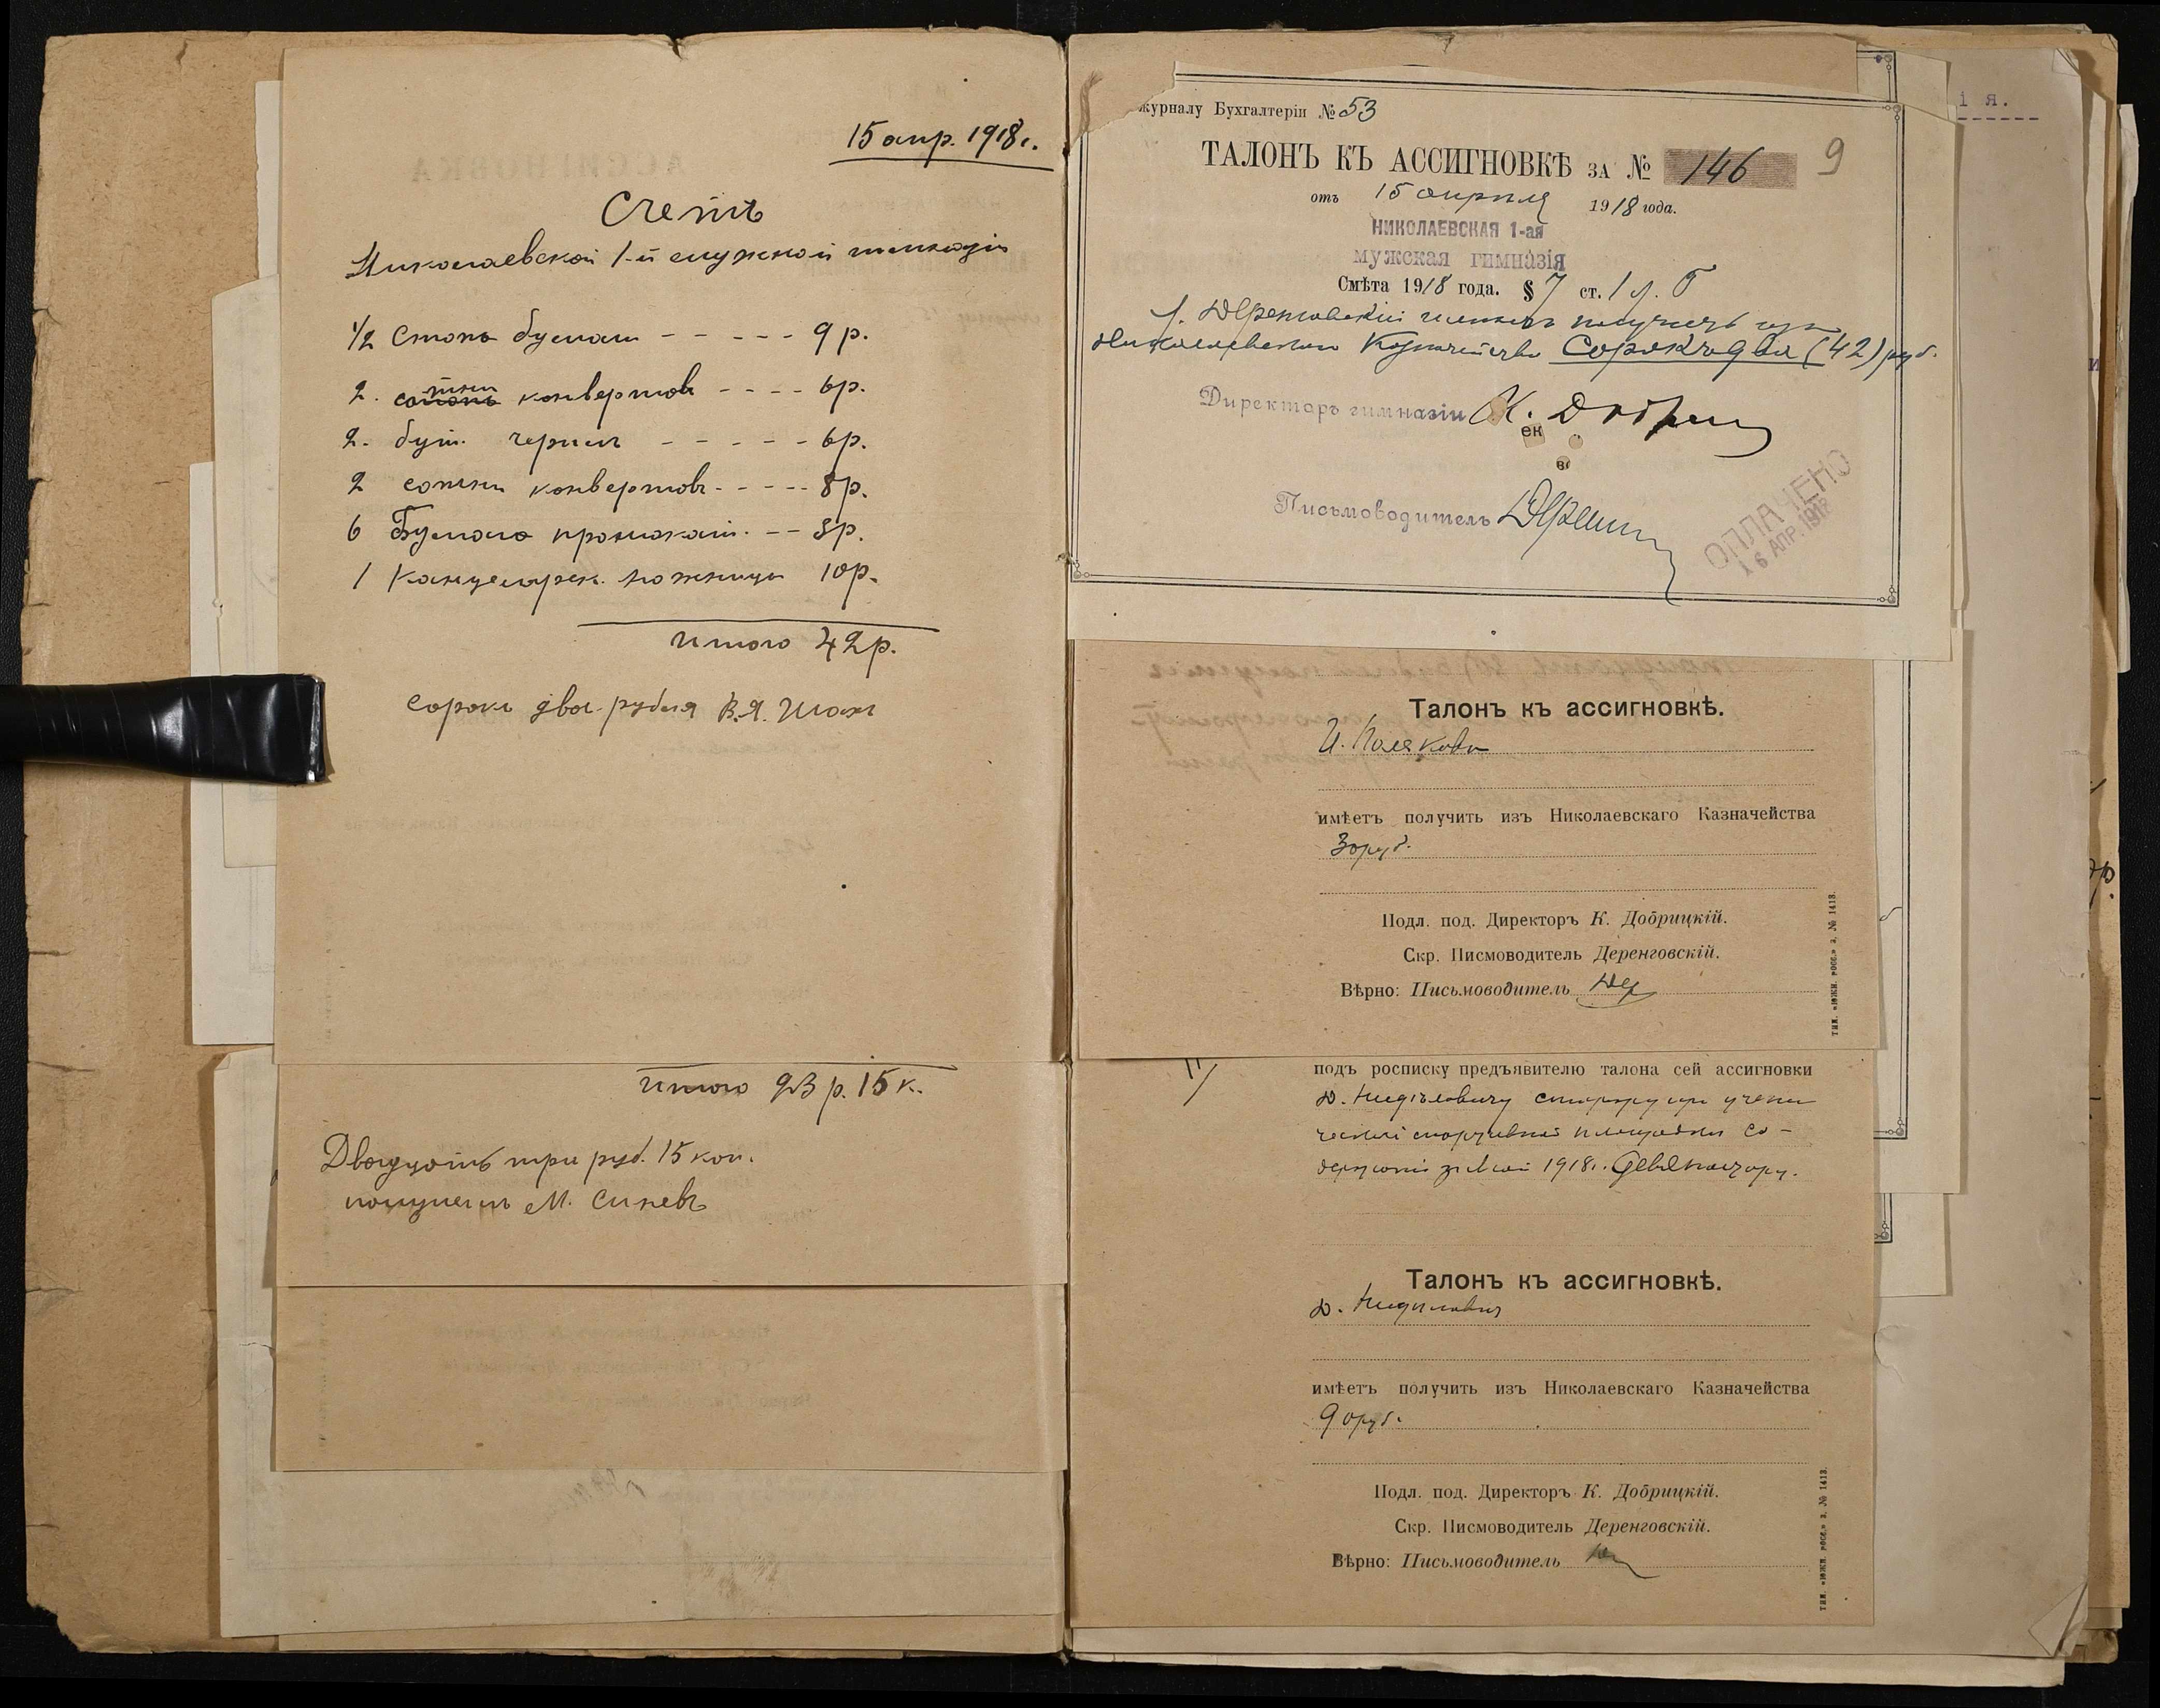 15 апр. 1918 г.
Счетъ
Николаевской 1-й мужской гимназіи
1/2 стопы бумаги - - - - - 9 р.
2. сотни конвертов - - - - 6р.
2. бут. чернил - - - - - 6р.
2 сотни конвертовъ - - - - - 8р.
6 Бумага промокат. - - 3р.
1 Канцелярск. ножницы 10р.
Итого 42р.
Сорокъ два рубля В.Я.
Итого 23 р. 15 к.
Двадцать три руб. 15 коп.
получилъ М. Синевъ
журналу Бухгалтеріи № 53
ТАЛОНЪ КЪ АССИГНОВКѢ ЗА № 146
9
отъ 15 апрѣля 1918 года.
НИКОЛАЕВСКАЯ 1-ая
мужская гимназія
Смѣта 1918 года. § 7 ст. 1 л. Б
получить изъ
Николаевскаго Казначейства Сорокъ два (42) руб.
Директоръ гимназіи К.
ек
Письмоводитель
ОПЛАЧЕНО
16 АПР. 1918
Талонъ къ ассигновкѣ.
И. Полякова
имѣетъ получить изъ Николаевскаго Казначейства
30 руб.
Подл. под. Директоръ К. Добрицкій.
Скр. Писмоводитель Деренговскій.
Вѣрно: Письмоводитель Дер
тип. «южн. росс.» з. № 1413.
подъ росписку предъявителю талона сей ассигновки
сторожу при учени
ческой спортивной площадки со-
держаніе за Май 1918 г. Девяносто ру.
Талонъ къ ассигновкѣ.
имѣетъ получить изъ Николаевскаго Казначейства
90 руб.
Подл. под. Директоръ К. Добрицкій.
Скр. Писмоводитель Деренговскій.
Вѣрно: Письмоводитель
тип. «южн. росс.» з. № 1413.
ія.